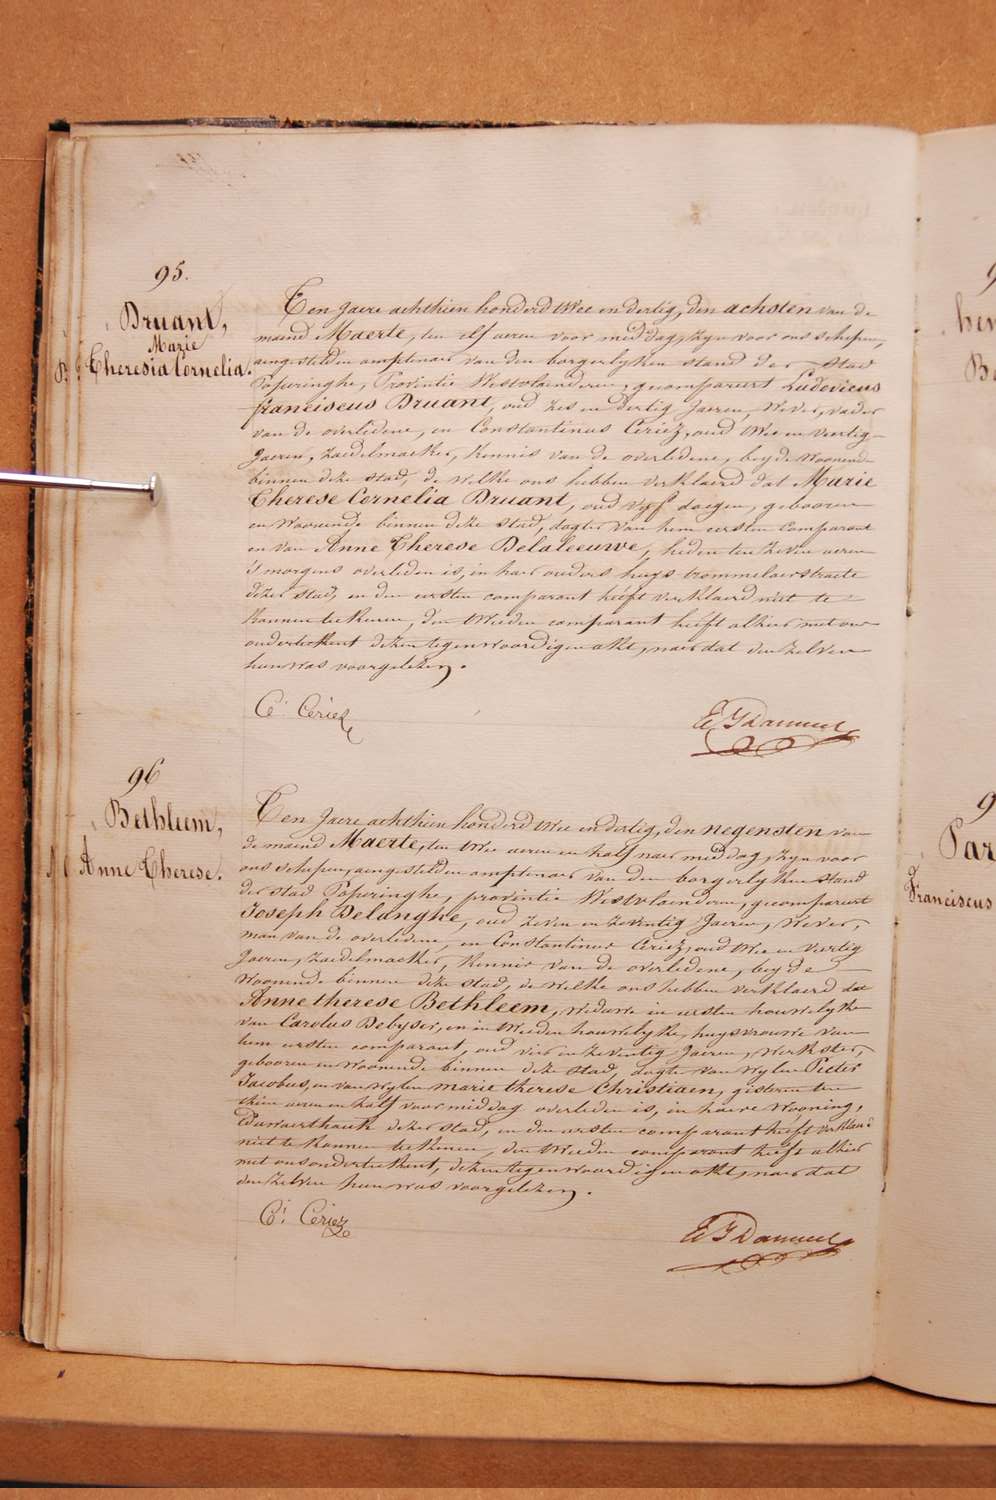 95.
Druant,
Marie
Theresia Cornelia.
Ten Jaere achthien honderd twee en dertig, den achsten van de
maend Maerte, ten elf ueren voor middag, zyn voor ons schepen,
aengestelden amptenaer van den borgerlyken stand der Stad
Poperinghe, Provintie Westvlaenderen, gecompareert Ludovicus
franciscus Druant, oud zes en dertig Jaeren, Wever, vader
van de overledene, en Constantinus Ceriez, oud twee en veertig
Jaeren, Zaedelmaeker, kennis van de overledene, beyde woonende
binnen deze stad, de welke ons hebben verklaerd dat Marie
Therese Cornelia Druant, oud vyf daegen, gebooren
en woonende binnen deze stad, dogter van hem eersten comparant
en van Anne Therese Delaleeuwe, heden ten zeven ueren
's morgens overleden is, in haer ouders huys trommelaerstraete
dezer stad, en den eersten comparant heeft verklaerd niet te
konnen teekenen, den tweeden comparant heeft alhier met ons
onderteekent dezen tegenwoordigen akt, naer dat den zelven
hun was voorgelezen.
Ct Ceriez
96
Bethleem,
Anne Therese.
Ten Jaere achthien honderd twee en dertig, den negensten van
de maend Maerte, ten twee ueren en half naer middag, zyn voor
ons schepen, aengestelden amptenaer van den borgerlyken stand
der stad Poperinghe, provintie Westvlaenderen, gecompareert
Joseph Delanghe, oud zeven en zeventig Jaeren, Wever,
man van de overledene, en Constantinus Ceriez, oud twee en veertig
Jaeren, Zaedelmaeker, kennis van de overledene, beyde
woonende binnen deze stad, de welke ons hebben verklaerd dat
Anne therese Bethleem, weduwe in eersten houwelyke
van Carolus Debyser, en in tweeden houwelyke, huysvrouwe van
hem eersten comparant, oud vier en zeventig Jaeren, werkster,
gebooren en woonende binnen deze stad, dogter van wylen Pieter
Jacobus, en van wylen marie therese Christiaen, gisteren ten
thien ueren en half voor middag overleden is, in haere wooning,
dezer stad, en den eersten comparant heeft verklaerd
niet te konnen teekenen, den tweeden comparant heeft alhier
met ons onderteekent, dezen tegenwoordigen akt, naer dat
den zelven hun was voorgelezen.
Ct Ceriez
Par
Franciscus